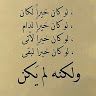 . لو كان خيراً لكان
. لو كان خيراً لدام
. لو كان خيراً لأتى
. لو كان خيراً لبقى
ولكنه لم يكن